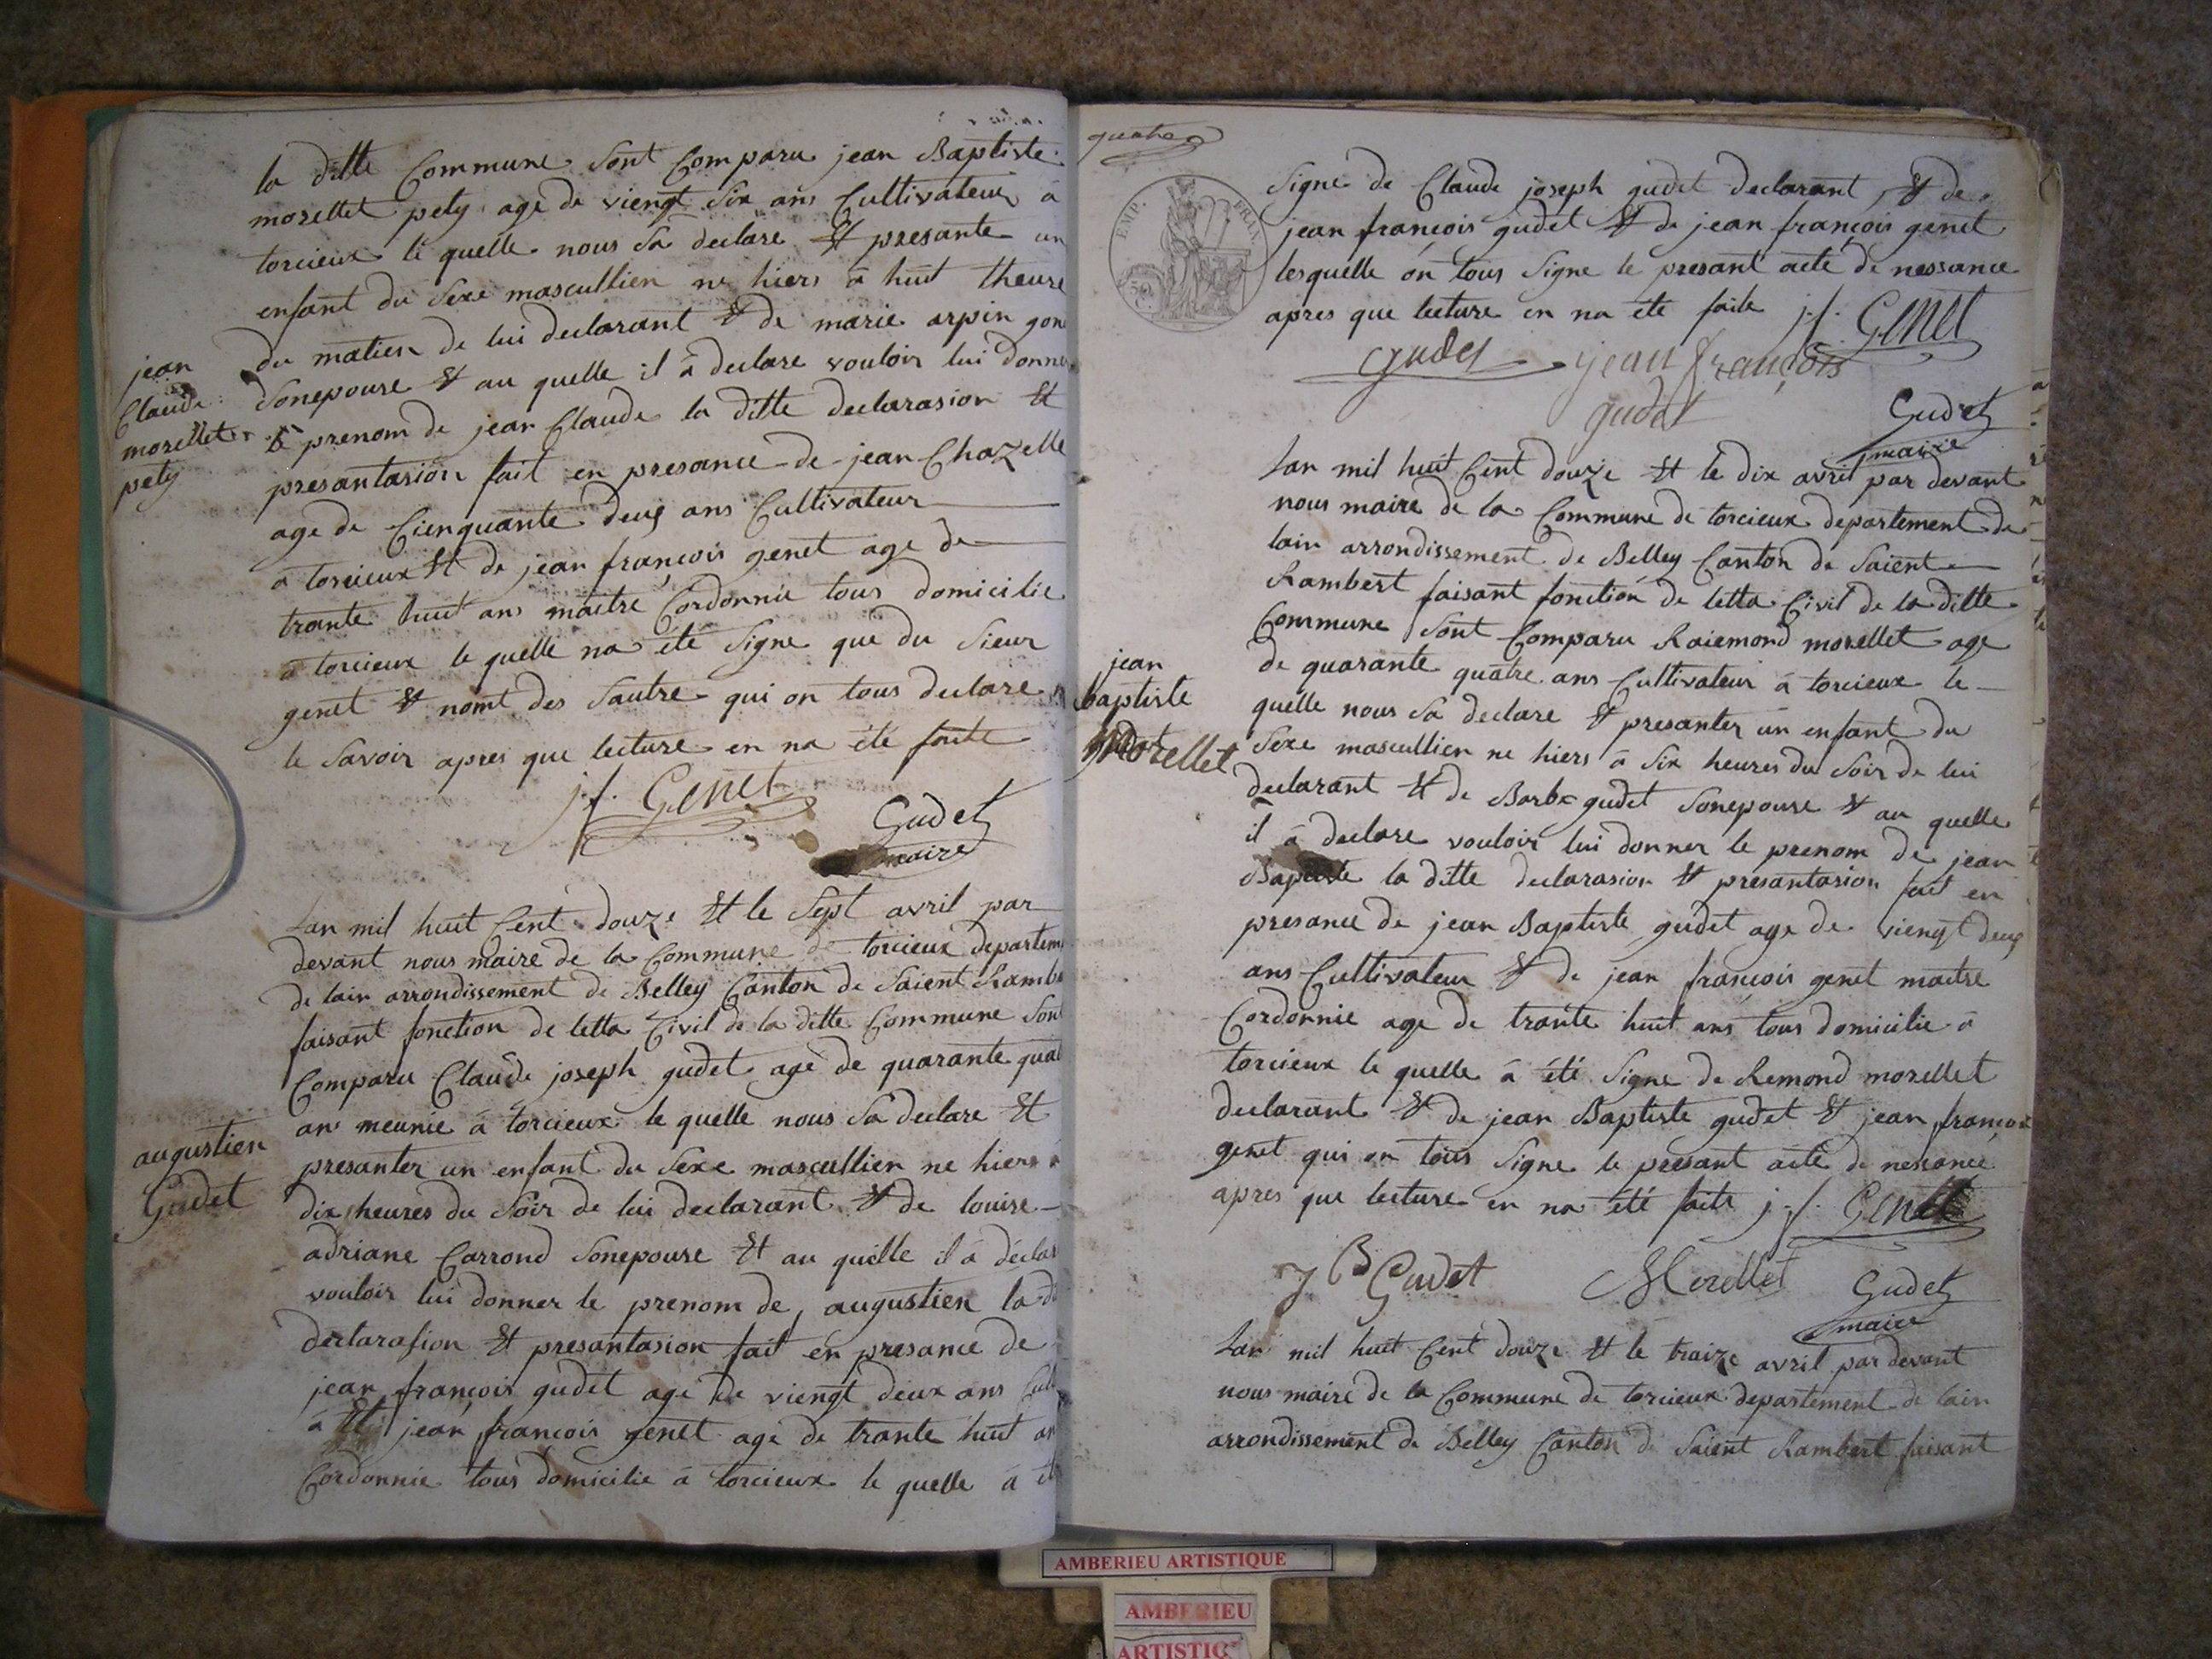 la ditte Commune sont Comparu jean Baptiste
morellet pety age de viengt six ans Cultivateur à
torcieux le quelle nous sa declare Et presante un
enfant du sexe mascullien ne hiers à huit theure
du matien de lui declarant Et de marie arpin gon
sonepouse Et au quelle il à declare vouloir lui donne
le prenom de jean Claude la ditte declarasion Et
presantasion fait en presance de jean Chazelle
age de Cienquante deux ans Cultivateur
à torcieux Et de jean françois genet age de
trante huit ans maitre Cordonnie tous domicilie
à torcieux le quelle na été signe que du sieur
genet Et nomt des sautre qui on tous declare
le savoir apres que lecture en na été faite
jean
Claude
morellet
pety
j.f. GENET
Gudet
maire
Lan mil huit Cent douze Et le sept avril par
devant nous maire de la Commune de torcieux departem
de lain arrondissement de Belley Canton de saient Ramb
faisant fonction de letta Civil de la ditte Commune son
Comparu Claude joseph gudet age de quarante quat
ans meunie à torcieux le quelle nous sa declare Et
presanter un enfant du sexe mascullien ne hiers à
dix heures du soir de lui declarant Et de louise
adriane Carrond sonepouse Et au quelle il à déclar
vouloir lui donner le prenom de augustien la d
declarasion Et presantasion fait en presance de
jean françois gudet age de viengt deux ans Cult
à Et jean françois genet age de trante huit an
Cordonnie tous domicilie à torcieux le quelle à ét
augustien
Gudet
quatre
EMP. FRAN.
signe de Claude joseph gudet declarant, Et de
jean françois gudet Et de jean françois genet
lesquelle on tous signe le presant acte de nessance
apres que lecture en na été faite j.f. GENET
gudet jean françois
gudet
Gudet
maire
Lan mil huit Cent douze Et le dix avril par devant
nous maire de la Commune de torcieux departement de
lain arrondissement de Belley Canton de saient
Rambert faisant fonction de letta Civil de la ditte
Commune sont Comparu Raiemond morellet age
de quarante quatre ans Cultivateur à torcieux le
quelle nous sa declare Et presanter un enfant du
sexe mascullien ne hiers à six heures du soir de lui
declarant Et de Barbe gudet sonepouse Et au quelle
il à declare vouloir lui donner le prenom de jean
Baptiste la ditte declarasion Et presantasion fait en
presance de jean Baptiste gudet age de viengt deux
ans Cultivateur Et de jean françois genet maitre
Cordonnie age de trante huit ans tous domicilie à
torcieux le quelle à été signe de Remond morellet
declarant Et de jean Baptiste gudet Et jean françois
genet qui on tous signe le presant acte de nessance
apres que lecture en na été faite j.f. GENET
jean
baptiste
Morellet
J B Gudet Morellet Gudet
maire
Lan mil huit Cent douze Et le traize avril par devant
nous maire de la Commune de torcieux departement de lain
arrondissement de Belley Canton de saient Rambert faisant
AMBERIEU ARTISTIQUE
AMBERIEU
ARTISTIQ